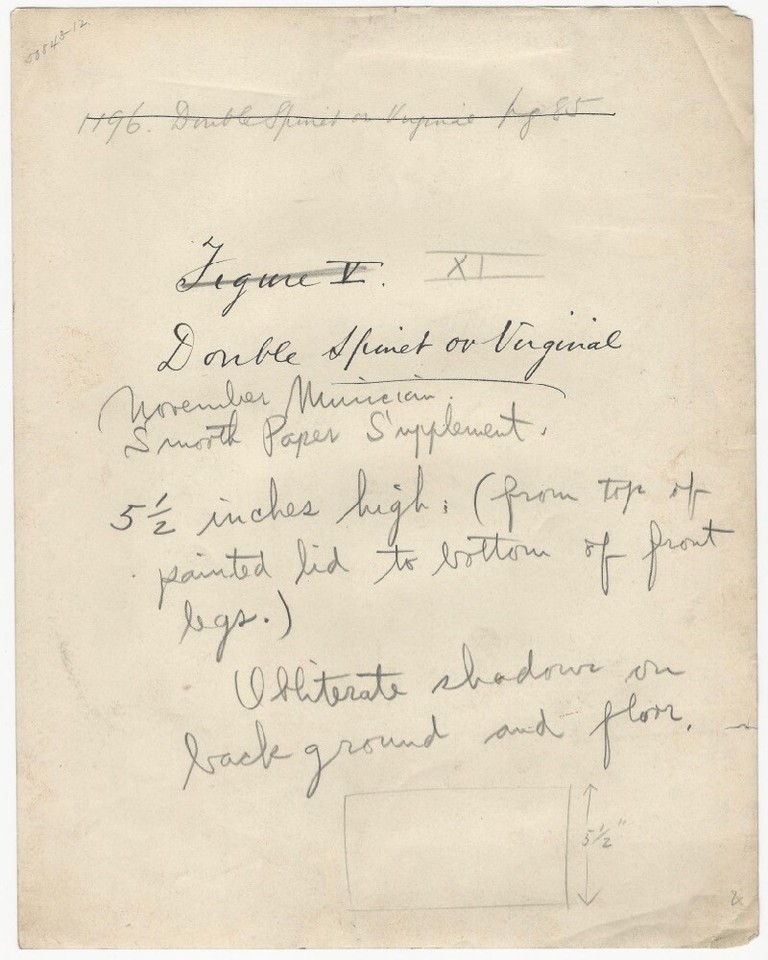 50843-12.
1196. Double Spinet or Virginal pg 85
Figure V. XI
Double Spinet or Virginal
November Musician.
Smooth Paper Supplement.
5 1/2 inches high; (from top of
painted lid to bottom of front
legs.)
Obliterate shadows on
background and floor.
5 1/2"
2